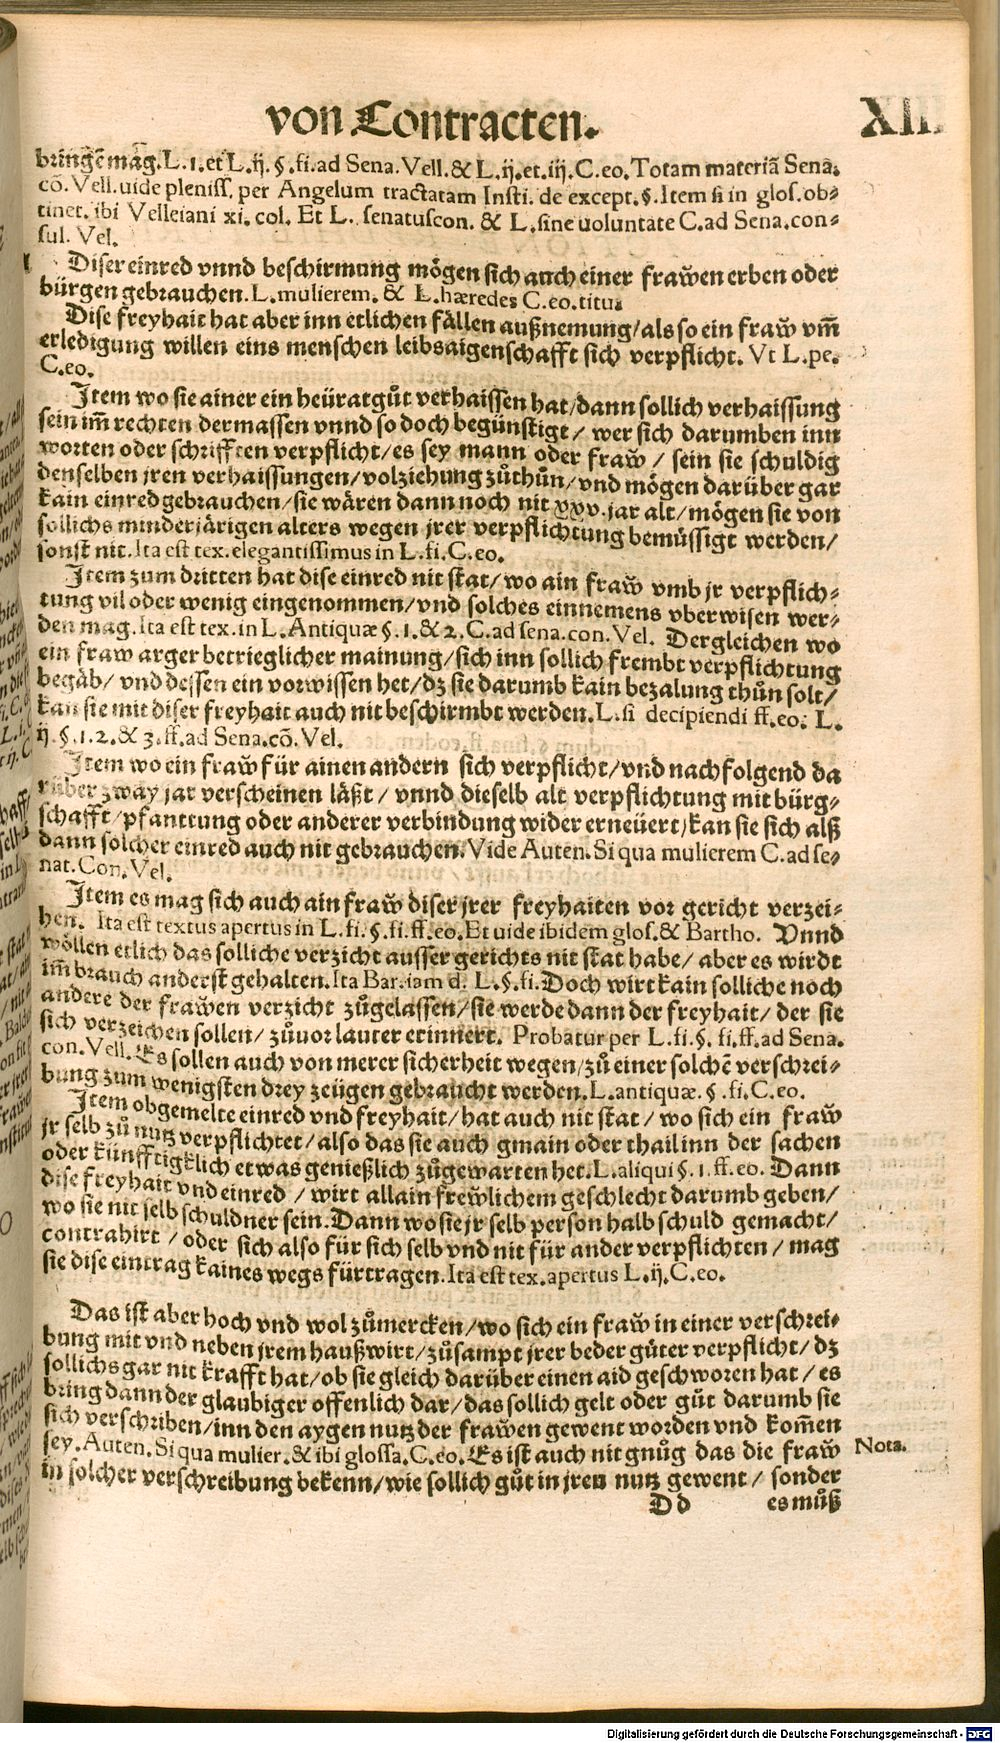 von Contracten. XII.
bringẽ mag. L. 1. et L. ij. §. fi. ad Sena. Vell. & L. ij. et. iij. C. eo. Totam materiã Sena.
cõ. Vell. uide pleniss. per Angelum tractatam Insti. de except. §. Item si in glos. ob-
tinet. ibi Velleiani xi. col. Et L. senatuscon. & L. sine uoluntate C. ad Sena. con-
sul. Vel.
Diser einred vnnd beschirmung mögen sich auch einer frawen erben oder
bürgen gebrauchen. L. mulierem. & L. hæredes C. eo. titu.
Dise freyhait hat aber inn etlichen fällen außnemung/ als so ein fraw vm̃
erledigung willen eins menschen leibsaigenschafft sich verpflicht. Vt L. pe.
C. eo.
Item wo sie ainer ein heüratgůt verhaissen hat/ dann sollich verhaissung
sein im̃ rechten dermassen vnnd so doch begünstigt/ wer sich darumben inn
worten oder schrifften verpflicht/ es sey mann oder fraw/ sein sie schuldig
denselben jren verhaissungen/ volziehung zůthůn/ vnd mögen darüber gar
kain einred gebrauchen/ sie wären dann noch nit xxv. jar alt/ mögen sie von
sollichs minderjärigen alters wegen jrer verpflichtung bemüssigt werden/
sonst nit. Ita est tex. elegantissimus in L. fi. C. eo.
Item zum dritten hat dise einred nit stat/ wo ain fraw vmb jr verpflich-
tung vil oder wenig eingenommen/ vnd solches einnemens vberwisen wer-
den mag. Ita est tex. in L. Antiquæ §. 1. & 2. C. ad sena. con. Vel. Dergleichen wo
ein fraw arger betrieglicher mainung/ sich inn sollich frembt verpflichtung
begäb/ vnd dessen ein vorwissen het/ dz sie darumb kain bezalung thůn solt/
kan sie mit diser freyhait auch nit beschirmbt werden. L. si decipiendi ff. eo. L.
ij. §. 1. 2. & 3. ff. ad Sena. cõ. Vel.
Item wo ein fraw für ainen andern sich verpflicht/ vnd nachfolgend da
rüber zway jar verscheinen läßt/ vnnd dieselb alt verpflichtung mit bürg-
schafft/ pfanttung oder anderer verbindung wider erneüert/ kan sie sich alß
dann solcher einred auch nit gebrauchen. Vide Auten. Si qua mulierem C. ad se-
nat. Con. Vel.
Item es mag sich auch ain fraw diser jrer freyhaiten vor gericht verzei-
hen. Ita est textus apertus in L. fi. §. fi. ff. eo. Et uide ibidem glos. & Bartho. Vnnd
wöllen etlich das solliche verzicht ausser gerichts nit stat habe/ aber es wirdt
im̃ brauch anderst gehalten. Ita Bar. iam d. L. §. fi. Doch wirt kain solliche noch
andere der frawen verzicht zůgelassen/ sie werde dann der freyhait/ der sie
sich verzeichen sollen/ zůuor lauter erinnert. Probatur per L. fi. §. fi. ff. ad Sena.
con. Vell. Es sollen auch von merer sicherheit wegen/ zů einer solchẽ verschrei-
bung zum wenigsten drey zeügen gebraucht werden. L. antiquæ. §. fi. C. eo.
Item obgemelte einred vnd freyhait/ hat auch nit stat/ wo sich ein fraw
jr selb zů nutz verpflichtet/ also das sie auch gmain oder thail inn der sachen
oder künfftigklich etwas genießlich zůgewarten het. L. aliqui §. 1. ff. eo. Dann
dise freyhait vnd einred/ wirt allain frewlichem geschlecht darumb geben/
wo sie nit selb schuldner sein. Dann wo sie jr selb person halb schuld gemacht/
contrahirt/ oder sich also für sich selb vnd nit für ander verpflichten/ mag
sie dise eintrag kaines wegs fürtragen. Ita est tex. apertus L. ij. C. eo.
Das ist aber hoch vnd wol zůmercken/ wo sich ein fraw in einer verschrei-
bung mit vnd neben jrem haußwirt/ zůsampt jrer beder güter verpflicht/ dz
sollichs gar nit krafft hat/ ob sie gleich darüber einen aid geschworen hat/ es
bring dann der glaubiger offenlich dar/ das sollich gelt oder gůt darumb sie
sich verschriben/ inn den aygen nutz der frawen gewent worden vnd kom̃en
sey. Auten. Si qua mulier. & ibi glossa. C. eo. Es ist auch nit gnůg das die fraw
Nota.
in solcher verschreibung bekenn/ wie sollich gůt in jren nutz gewent/ sonder
Dd es můß
Digitalisierung gefördert durch die Deutsche Forschungsgemeinschaft - DFG